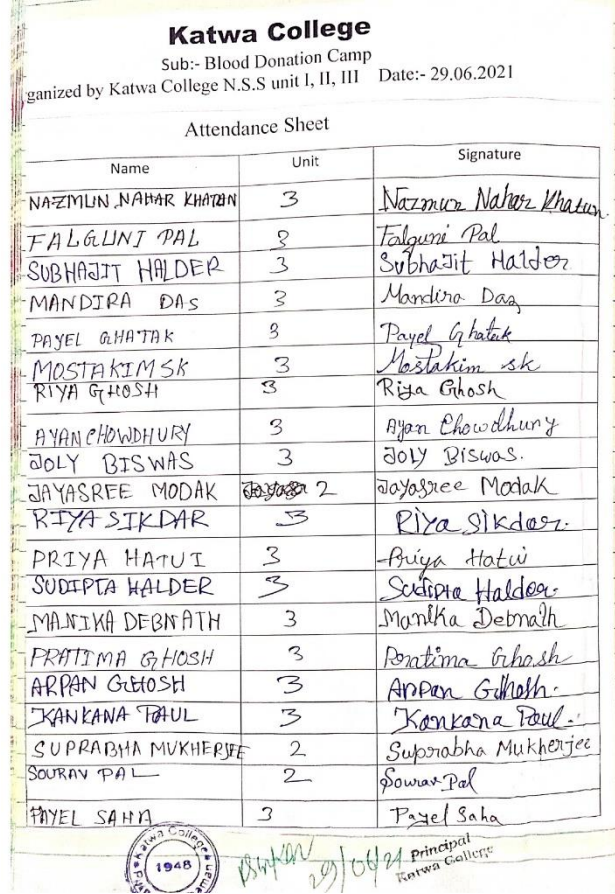 Katwa College
Sub:- Blood Donation Camp
ganized by Katwa College N.S.S unit I, II, III Date:- 29.06.2021
Attendance Sheet
Name Unit Signature
NAZMUN NAHAR KHATUN 3 Nazmun Nahar Khatun
FALGUNI PAL 3 Falguni Pal
SUBHAJIT HALDER 3 Subhajit Halder
MANDIRA DAS 3 Mandira Das
PAYEL GHATAK 3 Payel Ghatak
MOSTAKIM SK 3 Mostakim sk
RIYA GHOSH 3 Riya Ghosh
AYAN CHOWDHURY 3 Ayan Chowdhury
JOLY BISWAS 3 JOLY Biswas.
JAYASREE MODAK 2 Jayasree Modak
RIYA SIKDAR 3 Riya Sikdar.
PRIYA HATUI 3 Priya Hatui
SUDIPTA HALDER 3 Sudipta Halder.
MANIKA DEBNATH 3 Manika Debnath
PRATIMA GHOSH 3 Pratima Ghosh
ARPAN GHOSH 3 Arpan Ghosh.
KANKANA PAUL 3 Kankana Paul.
SUPRABHA MUKHERJEE 2 Suprabha Mukherjee
SOURAV PAL 2 Sourav Pal
PAYEL SAHA 3 Payel Saha
Katwa College
1948
29/06/21 Principal
Katwa College